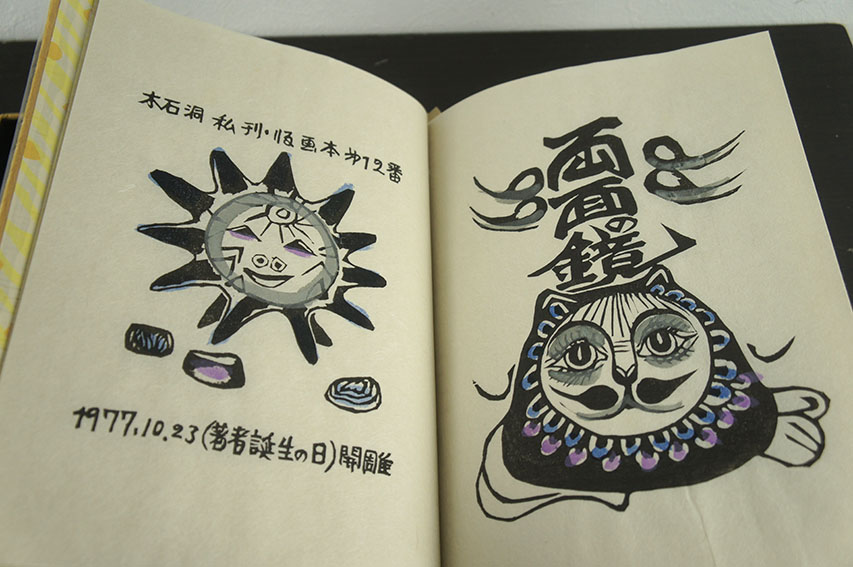 木石洞 私刊・版画本 才12番
1977.10.23(著者誕生の日)開雕
両面の鏡